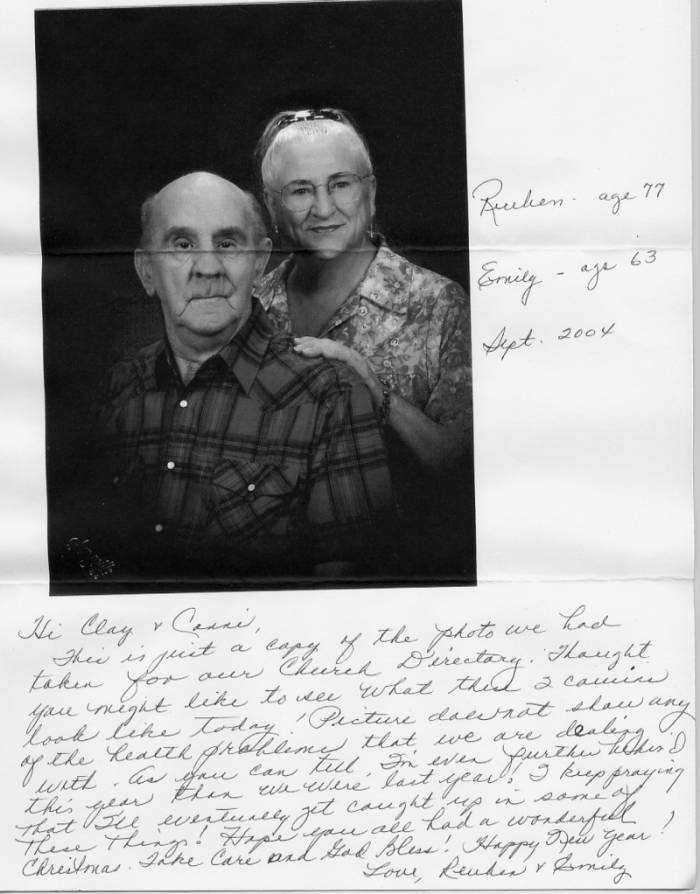 Reuben - age 77
Emily - age 63
Sept. 2004
Hi Clay & Conni,
This is just a copy of the photo we had
taken for our Church Directory. Thought
you might like to see what these 2 cousins
look like today! Picture does not show any
of the health problems that we are dealing
with. As you can tell, I'm even further behind
this year than we were last year! I keep praying
that I'll eventually get caught up in some of
these things! Hope you all had a wonderful
Christmas. Take Care and God Bless! Happy New Year!
Love, Reuben & Emily